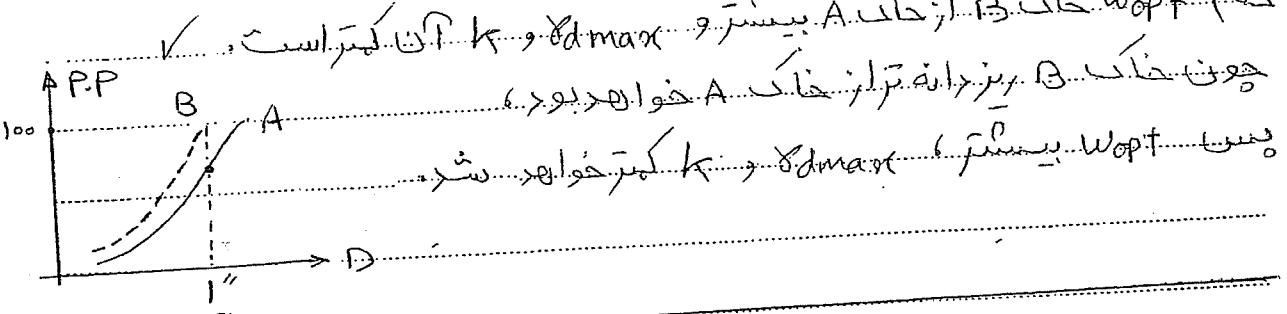 wopt خاک B از خاک A بیشتر و γdmax و k آن کمتر است. ✓
چون خاک B ریزدانه تر از خاک A خواهد بود،
پس wopt بیشتر، γdmax و k کمتر خواهد شد.
P.P
100
B
A
D
1"